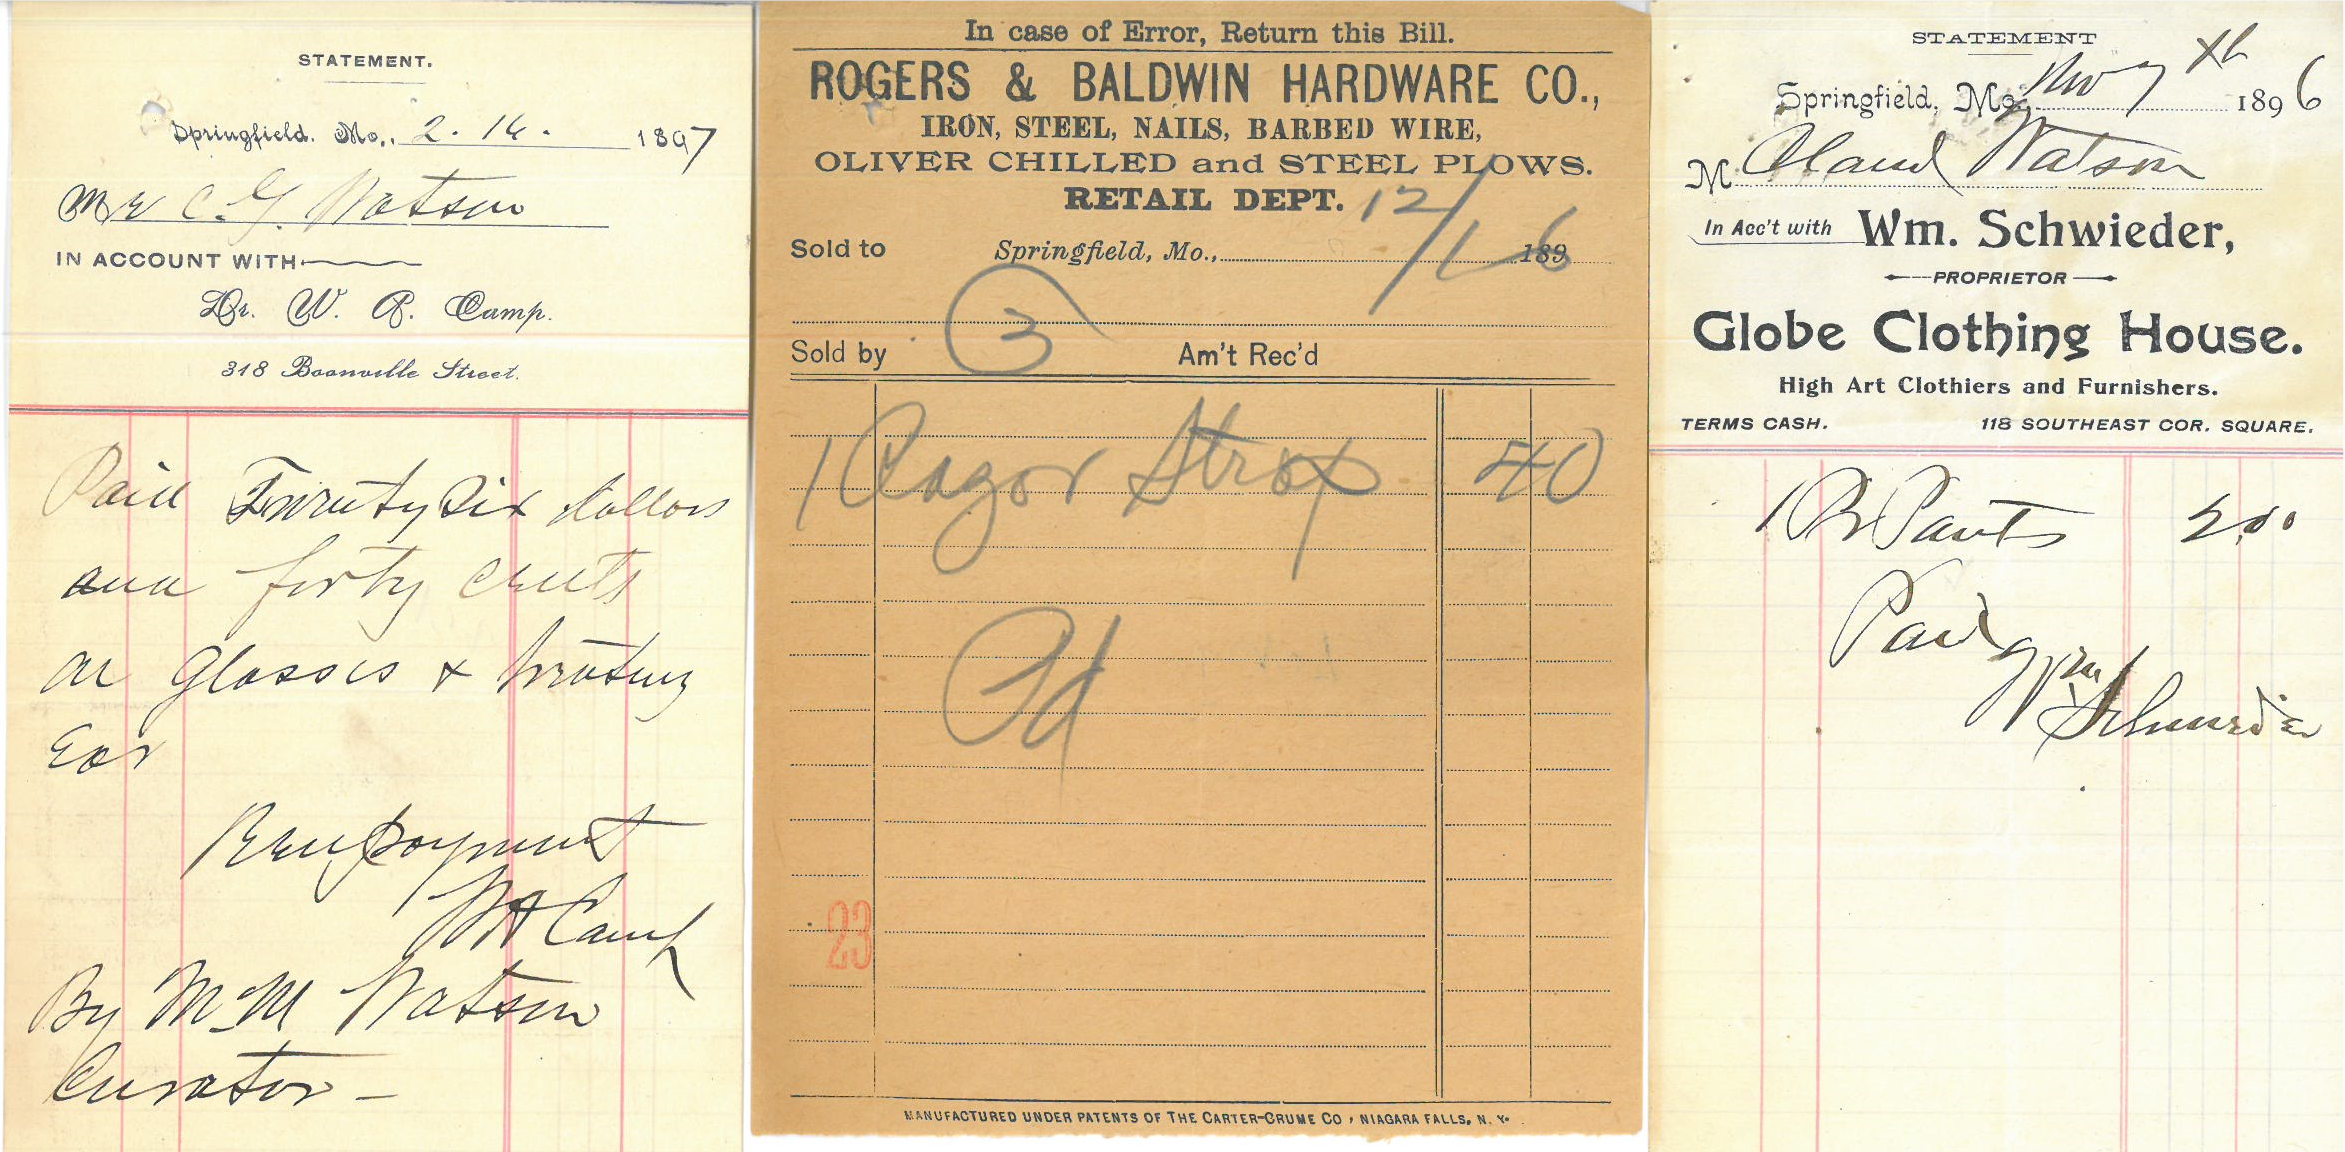 STATEMENT.
Springfield, Mo., 2. 16. 1897
Mr C. G. Watson
IN ACCOUNT WITH
Dr. W. A. Camp.
318 Boonville Street.
Paid Twenty Six dollars
and forty cents
on Glasses & treating
Ear
Payment
WA Camp
By M. M Watson
Curator -
In case of Error, Return this Bill.
ROGERS & BALDWIN HARDWARE CO.,
IRON, STEEL, NAILS, BARBED WIRE,
OLIVER CHILLED and STEEL PLOWS.
RETAIL DEPT. 12/1
Sold to Springfield, Mo., 189 6
3
Sold by Am't Rec'd
1 Razor Strop 40
Pd
23
MANUFACTURED UNDER PATENTS OF THE CARTER-CRUME CO, NIAGARA FALLS, N. Y.
STATEMENT
Springfield, Mo. Nov 7 th 1896
M Claud Watson
In Acc't with Wm. Schwieder,
PROPRIETOR
Globe Clothing House.
High Art Clothiers and Furnishers.
TERMS CASH. 118 SOUTHEAST COR. SQUARE.
1 Pr Pants 2.00
Paid
Wm
Schwieder